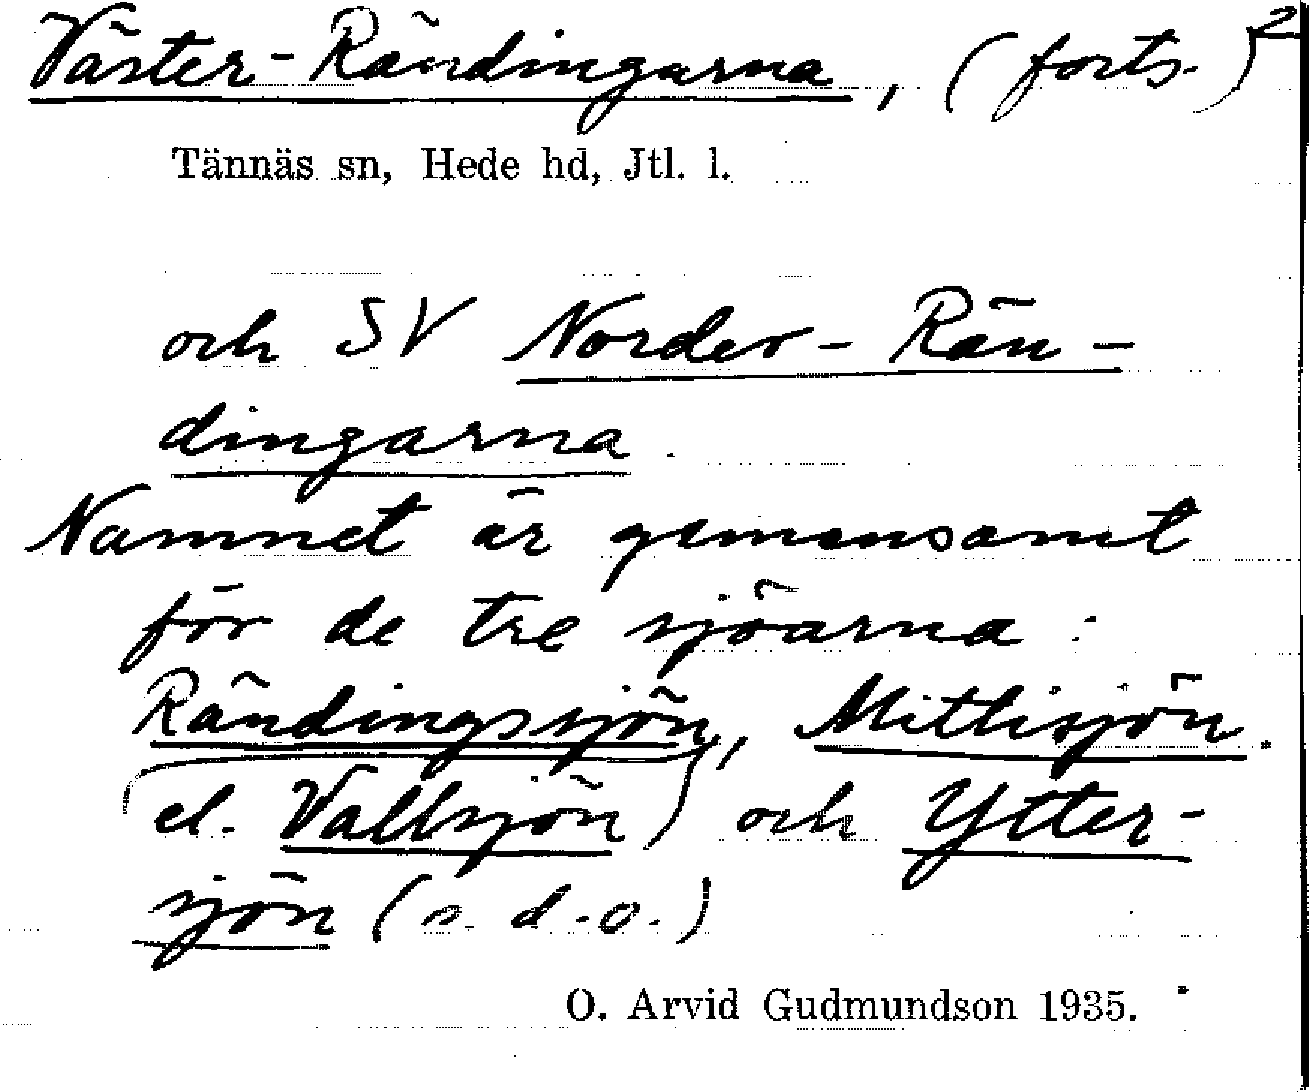 Väster-Rändingarna, (forts.) 2
Tännäs sn, Hede hd, Jtl. l.
och SV Norder-Rän-
dingarna.
Namnet är gemensamt
för de tre sjöarna:
Rändingssjön, Mittisjön.
(el. Vallsjön) och Ytter-
sjön (s. d. o.)
O. Arvid Gudmundson 1935.